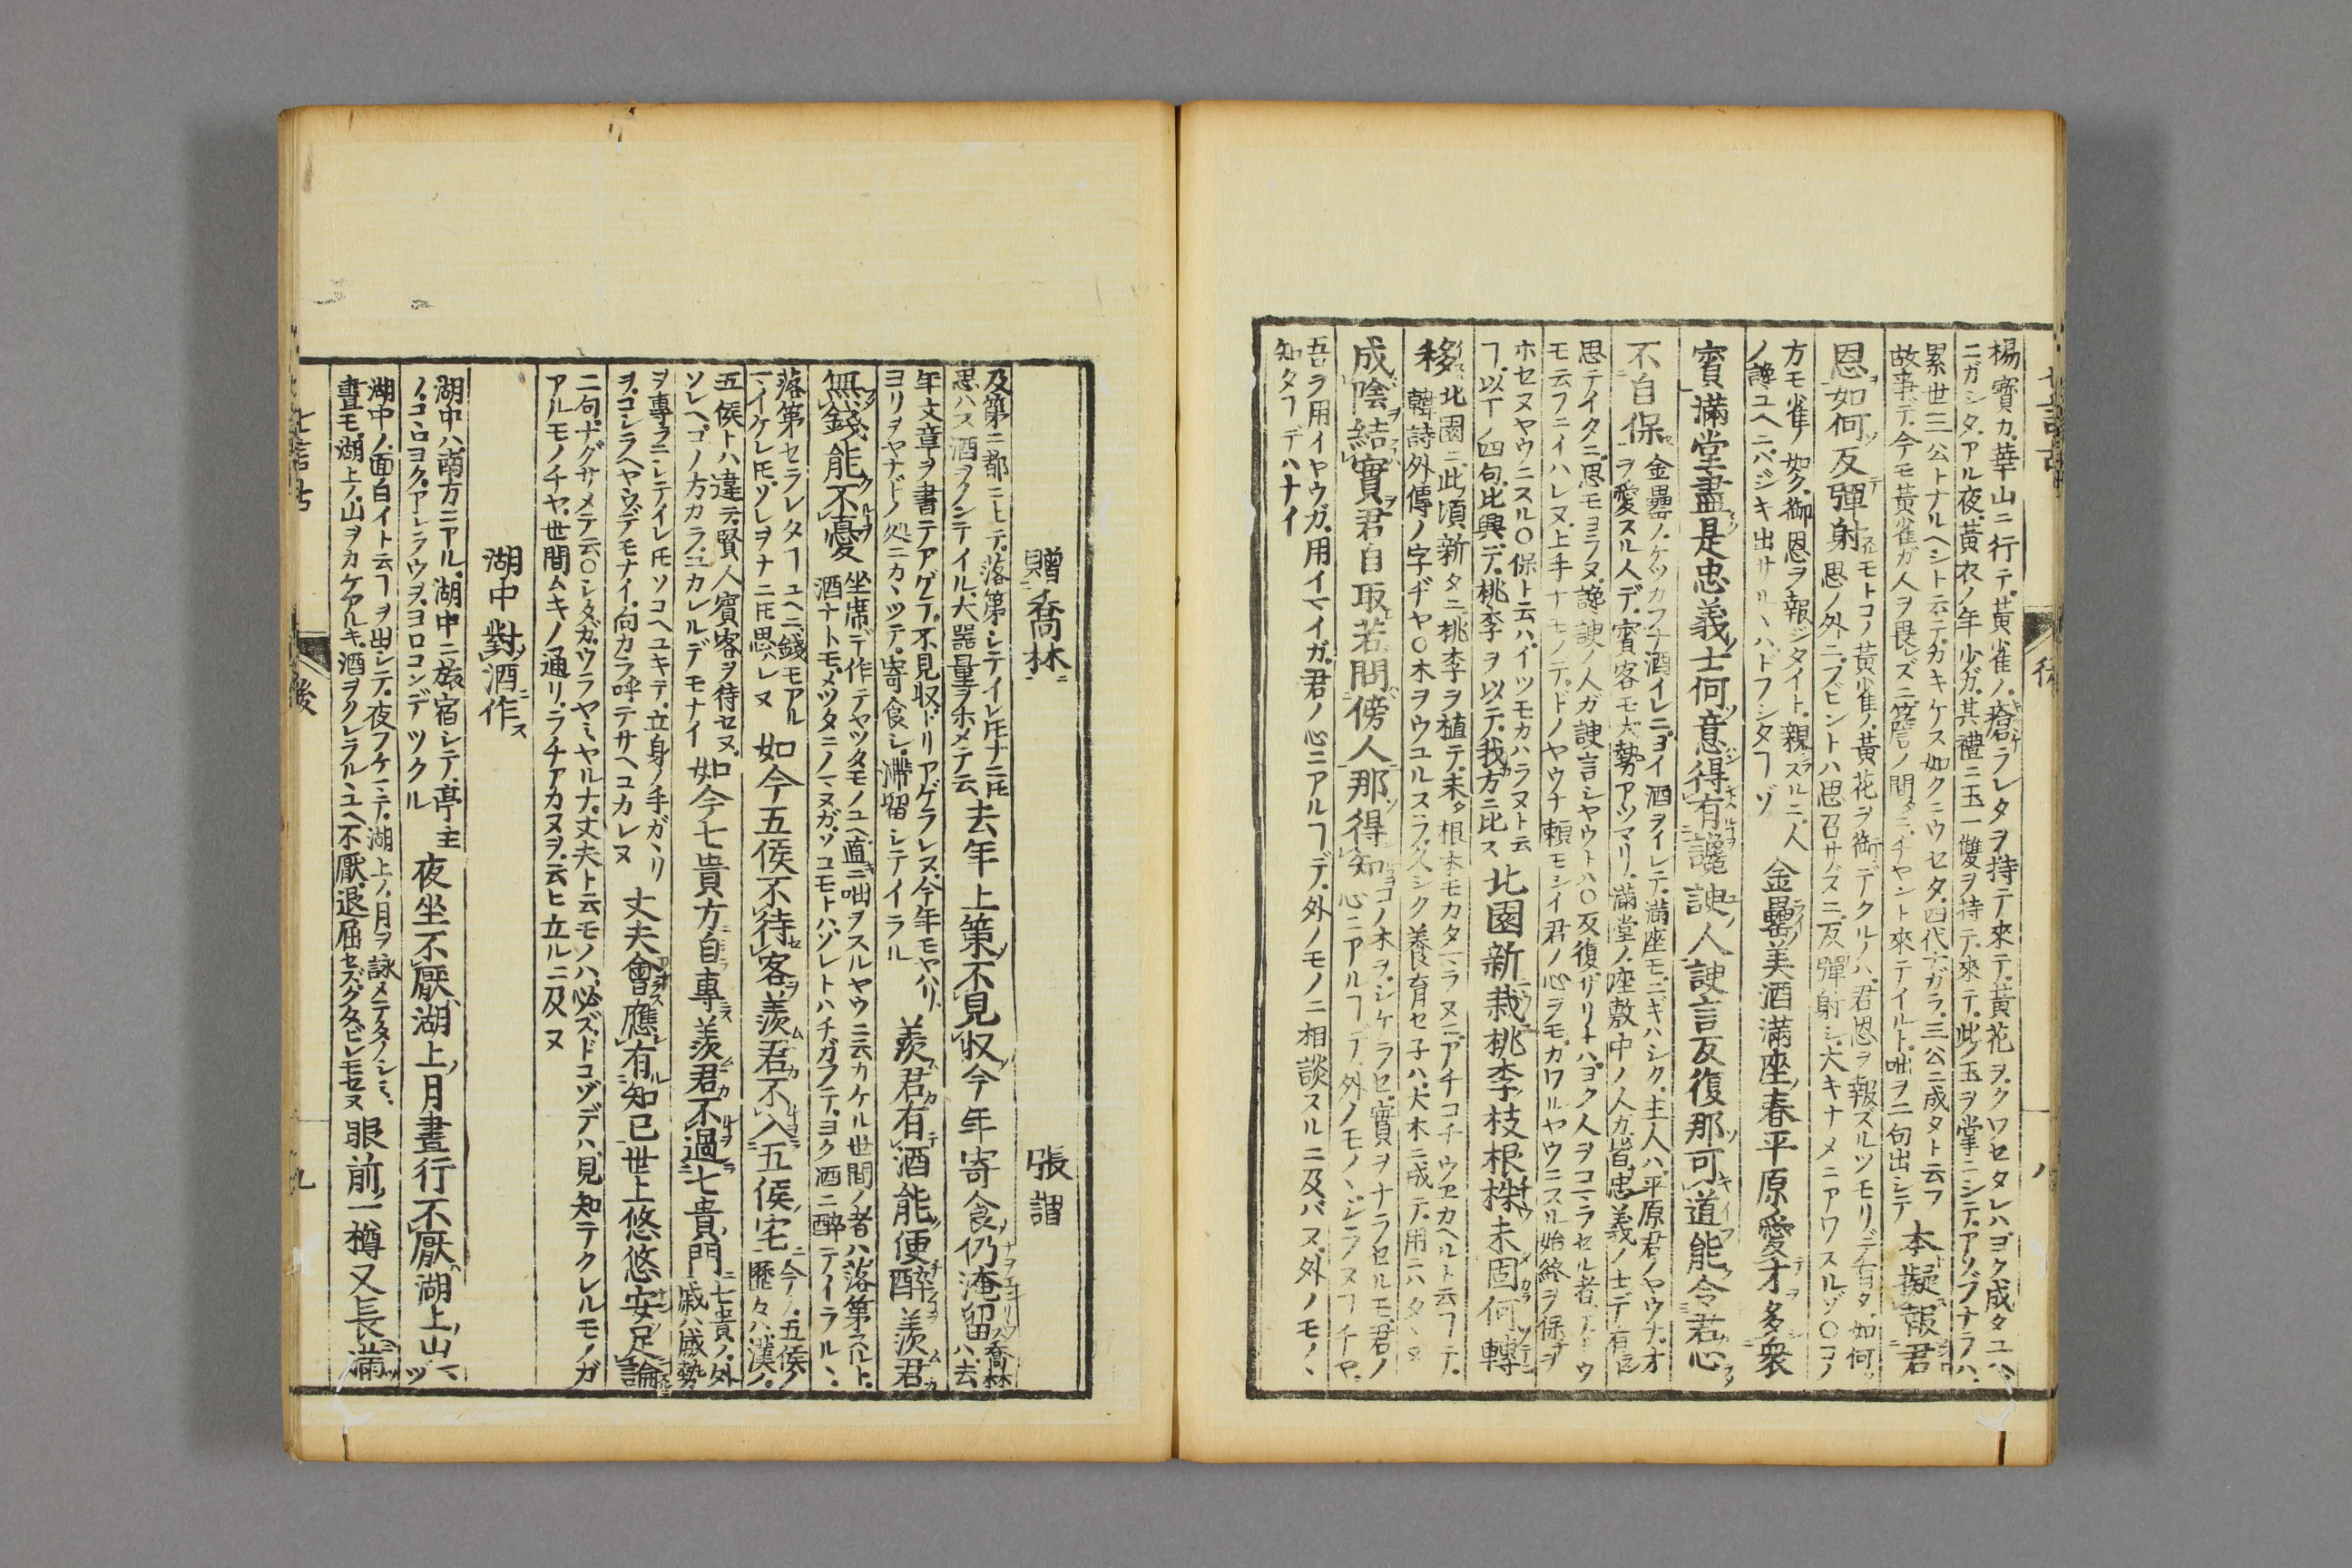 楊寳カ華山ニ行テ黄雀ノ瘡ラレタヲ持ニテ來テ黄花ヲクワセタレハヨク成タユヘ
ニガシタアル夜黄衣ノ年少ガ其禮ニ玉一雙ヲ持テ來テ此玉ヲ掌ニシテアソブナラハ
累世三公トナルヘシト云テカキケス如クニウセタ四代ナガラ三公ニ成タト云フ
故事デ今モ黄雀ガ人ヲ畏レズニ階ノ間タニチヤント來テイルト咄ヲ二句出シテ
本擬報君
恩如何反彈射
モトコノ黄雀ノ黄花ヲ銜デクルノハ君恩ヲ報ズルツモリデ有ヨタ如何
思ノ外ニブビントハ思召サズニ反彈射シ大キナメニアワスルゾ○コノ
方モ雀ノ如ク御恩ヲ報ジタイト親スルニ人
ノ讒ユヘニハジキ出サルヽハドフシタフゾ
金罍美酒滿座春平原愛才多衆
賓滿堂盡是忠義士何意得有讒諛人諛言反復那可道能令君心
不自保
金罍ノケツカフナ酒イレニヨイ酒ヲイレテ滿座モニギハシク主人ハ平原君ノヤウナオ
ヲ愛スル人デ賓客モ大勢アツマリ滿堂ノ座敷中ノ人カ皆忠義ノ士デ有
思テイタニ思モヨラヌ讒諛ノ人ガ諛言シヤウトハ○反復ザリトハヨク人ヲコマラセル者ドウ
モ云フニイハレヌ上手ナモノテドノヤウナ頼モシイ君ノ心ヲモカワルヤウニスル始終ヲ保ヲ
ホセヌヤウニスル○保ト云ハイツモカハラヌト云
フ以下ノ四句比興デ桃李ヲ以テ我方ニ比ス
北園新栽桃李枝根株未固何轉
移
北園ニ此頃新タニ桃李ヲ植テ未タ根本モカタマラヌニアチコチウヱカヘルト云フテ
韓詩外傳ノ字ヂヤ○木ヲウユルスラ久シク養育セ子ハ大木ニ成テ用ニハタヽヌ
成陰結實君自取若問傍人那得知
コノ木ヲシケラセ實ヲナラセルモ君ノ
心ニアルフデ外ノモノヽシラヌフチヤ
吾ヲ用イヤウガ用イマイガ君ノ心ニアルフデ外ノモノニ相談スルニ及バヌ外ノモノヽ
知タフデハナイ
贈喬林 張謂
去年上策不見収今年寄食仍淹留
喬林ハ去
及第ニ都ニ上テ落第シテイレ𪜈ナニ𪜈
思ハス酒ヲノンテイル大器量ヲホメテ云
年文章ヲ書テアゲテ不見収ドリアゲラレヌ今年モヤハリ
ヨリヲヤナドノ処ニカヽツテ寄食シ滯留シテイラル
羨君有酒能便醉羨君
無錢能不憂
坐席デ作テヤツタモノユヘ直ニ咄ヲスルヤウニ云カケル世間ノ者ハ落第スルト
酒ナトモメツタニノマヌガソコモトハソレトハチガフテヨク酒ニ醉テイラルヽ
落第セラレタフユヘニ錢モアル
マイケレ𪜈ソレヲナニ𪜈思ハレヌ
如今五侯不待客羨君不入五侯宅
今ノ五侯ノ
歷々ハ漢ノ
五侯トハ違テ賢人賓客ヲ待セヌ
ソレヘゴノ方カラユカレルデモナイ
如今七貴方自專羨君不過七貴門
七貴ノ外
戚ハ威勢
ヲ專ラニシテイレ𪜈ソコヘユキテ立身ノ手ガヽリ
ヲコシラヘヤウデモナイ向カラ呼テサヘユカレヌ
丈夫會應有知己世上悠悠安足論
二句ナグサメテ云○シタガウラヤミヤルナ丈夫ト云モノハ必ズドコゾデハ見知テクレルモノガ
アルモノチヤ世間ムキノ通リラチアカヌヲ云ヒ立ルニ及ヌ
湖中對酒作
湖中ハ南方ニアル湖中ニ旅宿シテ亭主
ノコヽロヨクアシラウヲヨロコンデツクル
夜坐不厭湖上月晝行不厭湖上山
湖中ノ面白イト云フヲ出シテ夜フケマテ湖上ノ月ヲ詠メテタノシミ
晝モ湖上ノ山ヲカケアルキ酒ヲクレラルヽユヘ不厭退屈セズクタビレモセヌ
眼前一樽又長滿
九